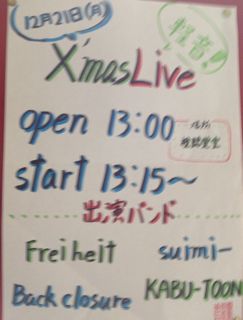 12月21日(月)
軽音!!
X'mas Live
open 13:00
場所
start 13:15～
出演バンド
Freiheit
suimi-
Back closure
KABU-TOON